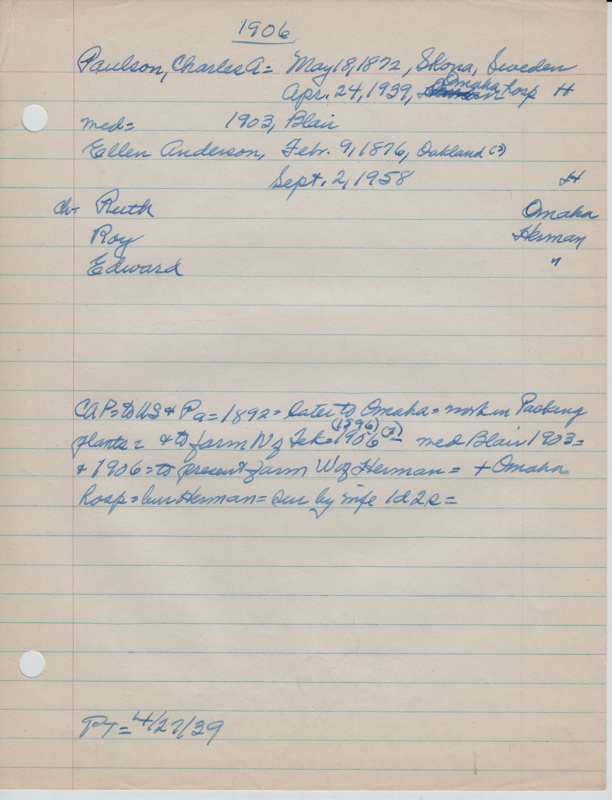 1906
Paulson, Charles A = May 18, 1872, Skona, Sweden
Apr. 24, 1939, Omaha Hosp H
med = 1903, Blair
Ellen Anderson, Febr. 9, 1876, Oakland (?)
Sept. 2, 1958 H
ch- Ruth Omaha
Roy Herman
Edward "
CAP = to US & Pa = 1892 = later to Omaha = work in Packing
(1896) (?)
plants = & to farm N of Tek = 1906 - med Blair 1903 =
& 1906 = to present farm W of Herman = + Omaha
hosp = bur Herman = sur by wife 1d 2s =
PT = 4/27/39